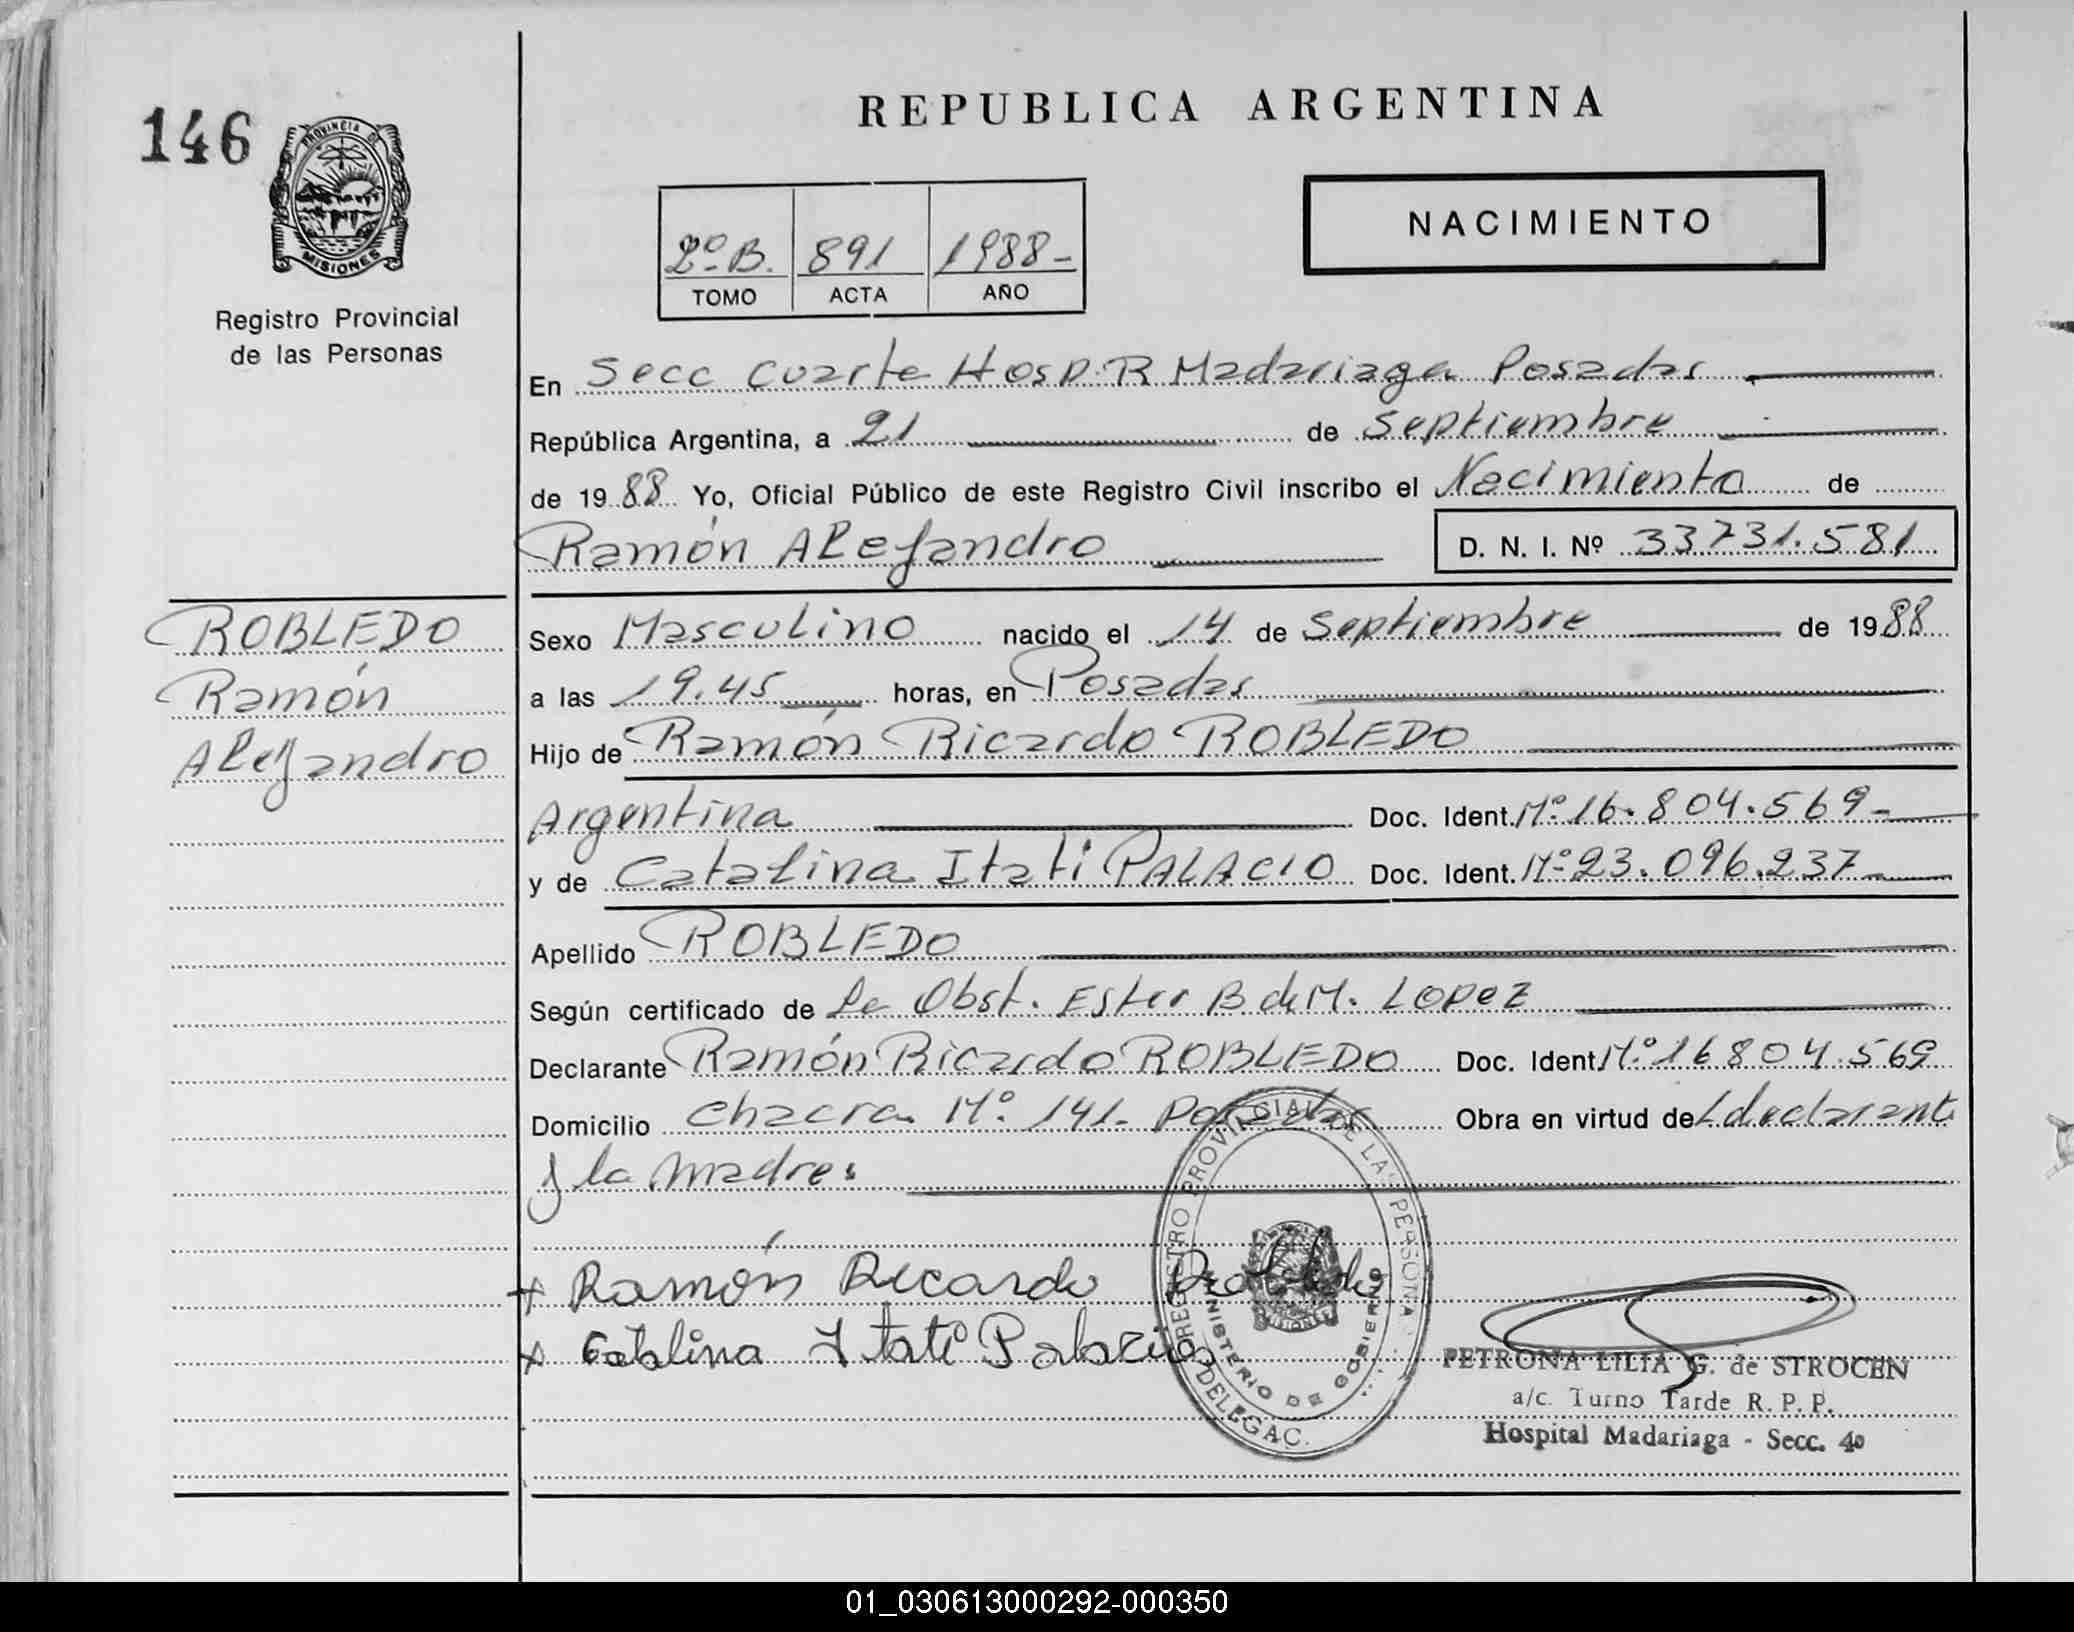 REPUBLICA ARGENTINA
146
PROVINCIA DE
MISIONES
Registro Provincial
de las Personas
2º B. 891 1988-
TOMO ACTA AÑO
NACIMIENTO
En Secc Cuarta Hosp. R Madariaga Posadas
República Argentina, a 21 de Septiembre
de 1988 Yo, Oficial Público de este Registro Civil inscribo el Nacimiento de
Ramón Alejandro D. N. I. Nº 33731.581
ROBLEDO
Ramón
Alejandro
Sexo Masculino nacido el 14 de Septiembre de 1988
a las 19.45 horas, en Posadas
Hijo de Ramón Ricardo ROBLEDO
Argentina Doc. Ident. Nº 16.804.569-
y de Catalina Itati PALACIO Doc. Ident. Nº 23.096.237-
Apellido ROBLEDO
Según certificado de la Obst. Ester B de M. Lopez
Declarante Ramón Ricardo ROBLEDO Doc. Ident. Nº 16804.569
Domicilio Chacra Nº 141- Posadas Obra en virtud del declarante
y la madre.
x Ramón Ricardo Robledo
x Catalina Itati Palacio
REGISTRO PROVINCIAL DE LAS PERSONAS
MINISTERIO DE GOBIERNO
MISIONES
DELEGAC.
PETRONA LILIA G. de STROCEN
a/c. Turno Tarde R. P. P.
Hospital Madariaga - Secc. 4º
01_030613000292-000350